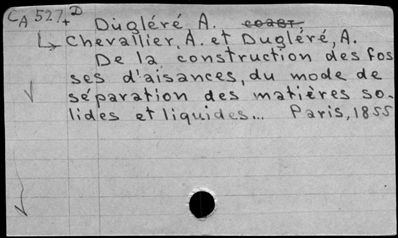 CA 527+D Dugléré A.
↳ Chevallier, A. et Dugléré, A.
De la construction des fos
ses d'aisances, du mode de
séparation des matières so-
lides et liquides... Paris, 1855